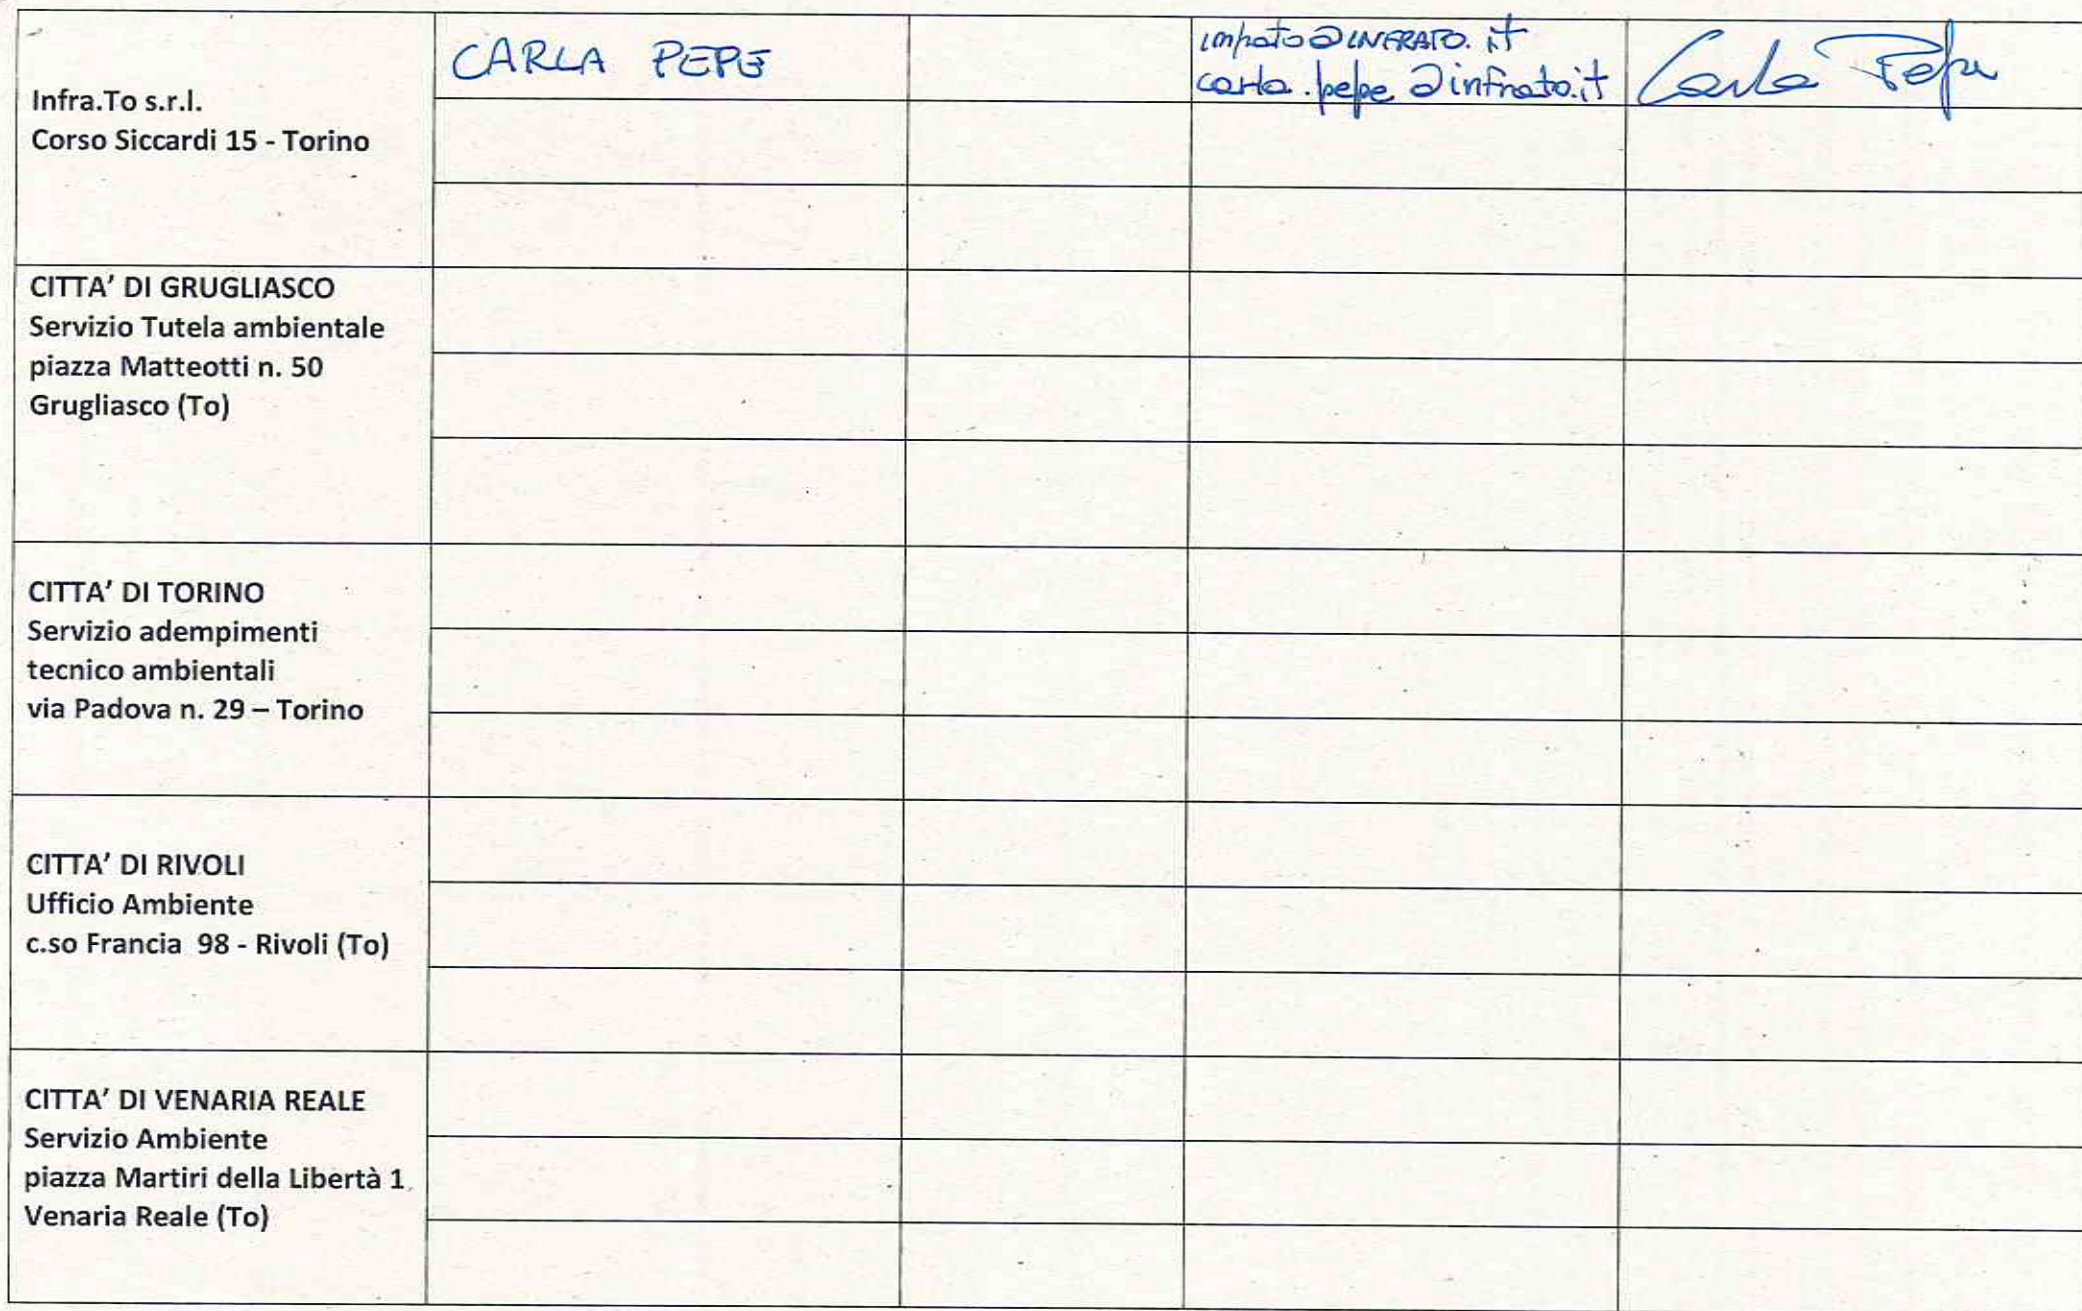 CARLA PEPE
impato@INFRATO.it
carla.pepe@infrato.it
Carla Pepe
Infra.To s.r.l.
Corso Siccardi 15 - Torino
CITTA' DI GRUGLIASCO
Servizio Tutela ambientale
piazza Matteotti n. 50
Grugliasco (To)
CITTA' DI TORINO
Servizio adempimenti
tecnico ambientali
via Padova n. 29 – Torino
CITTA' DI RIVOLI
Ufficio Ambiente
c.so Francia 98 - Rivoli (To)
CITTA' DI VENARIA REALE
Servizio Ambiente
piazza Martiri della Libertà 1
Venaria Reale (To)